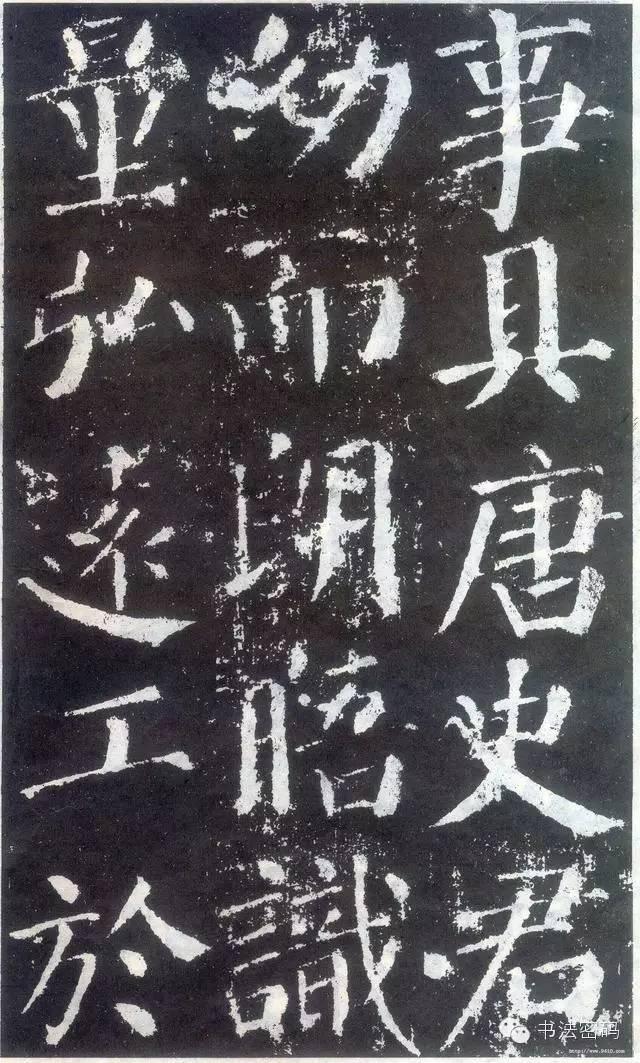 事具唐史君
幼而朗晤識
量弘遠工於
书法密码
http://www.9610.com